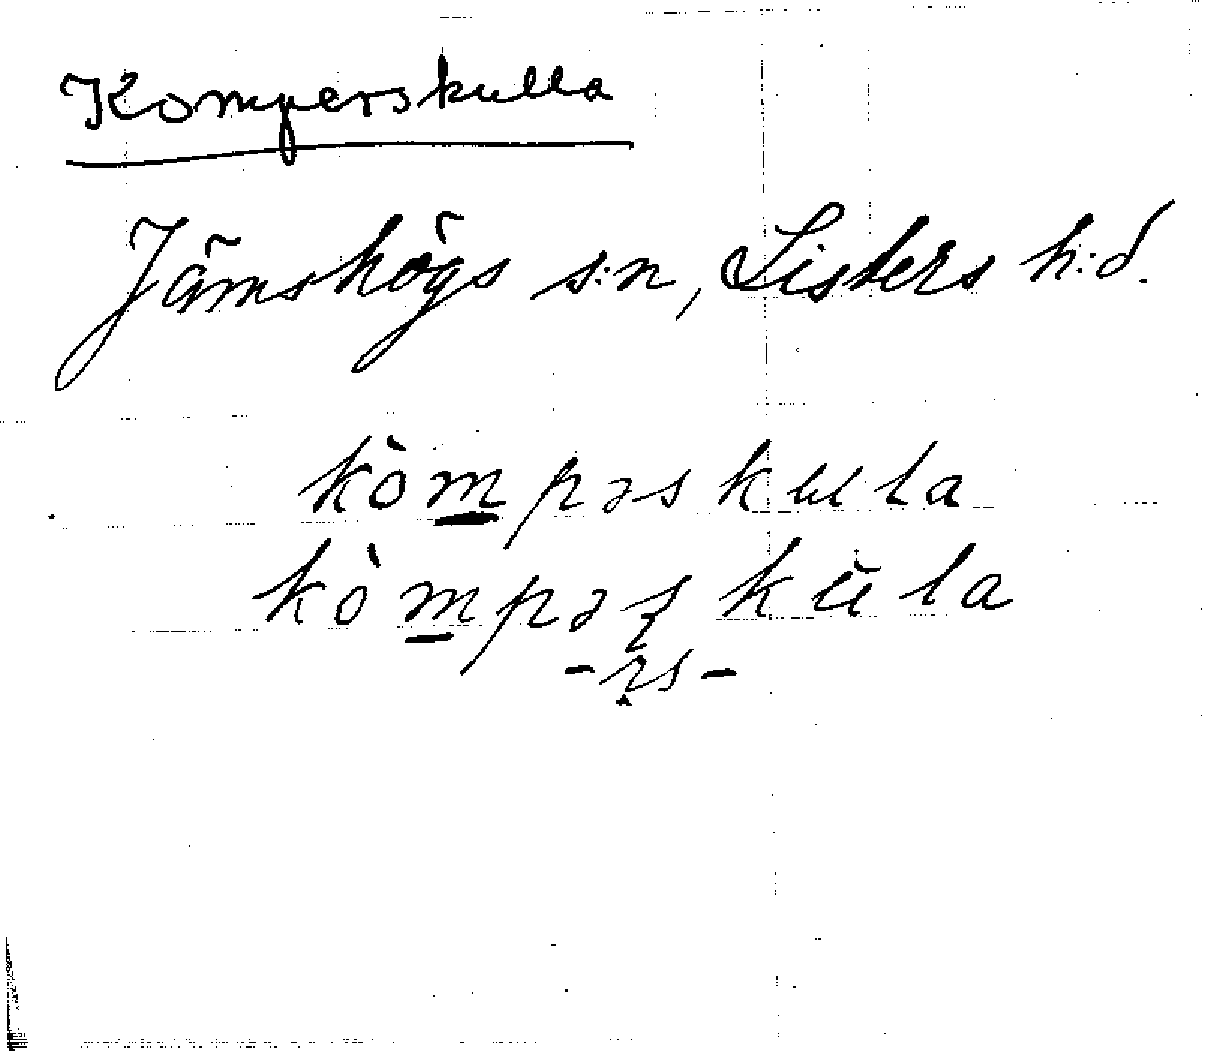 Komperskulla
Jämshögs s:n, Listers h:d.
kòmpəskula
kòmpəʂkula
-rs-